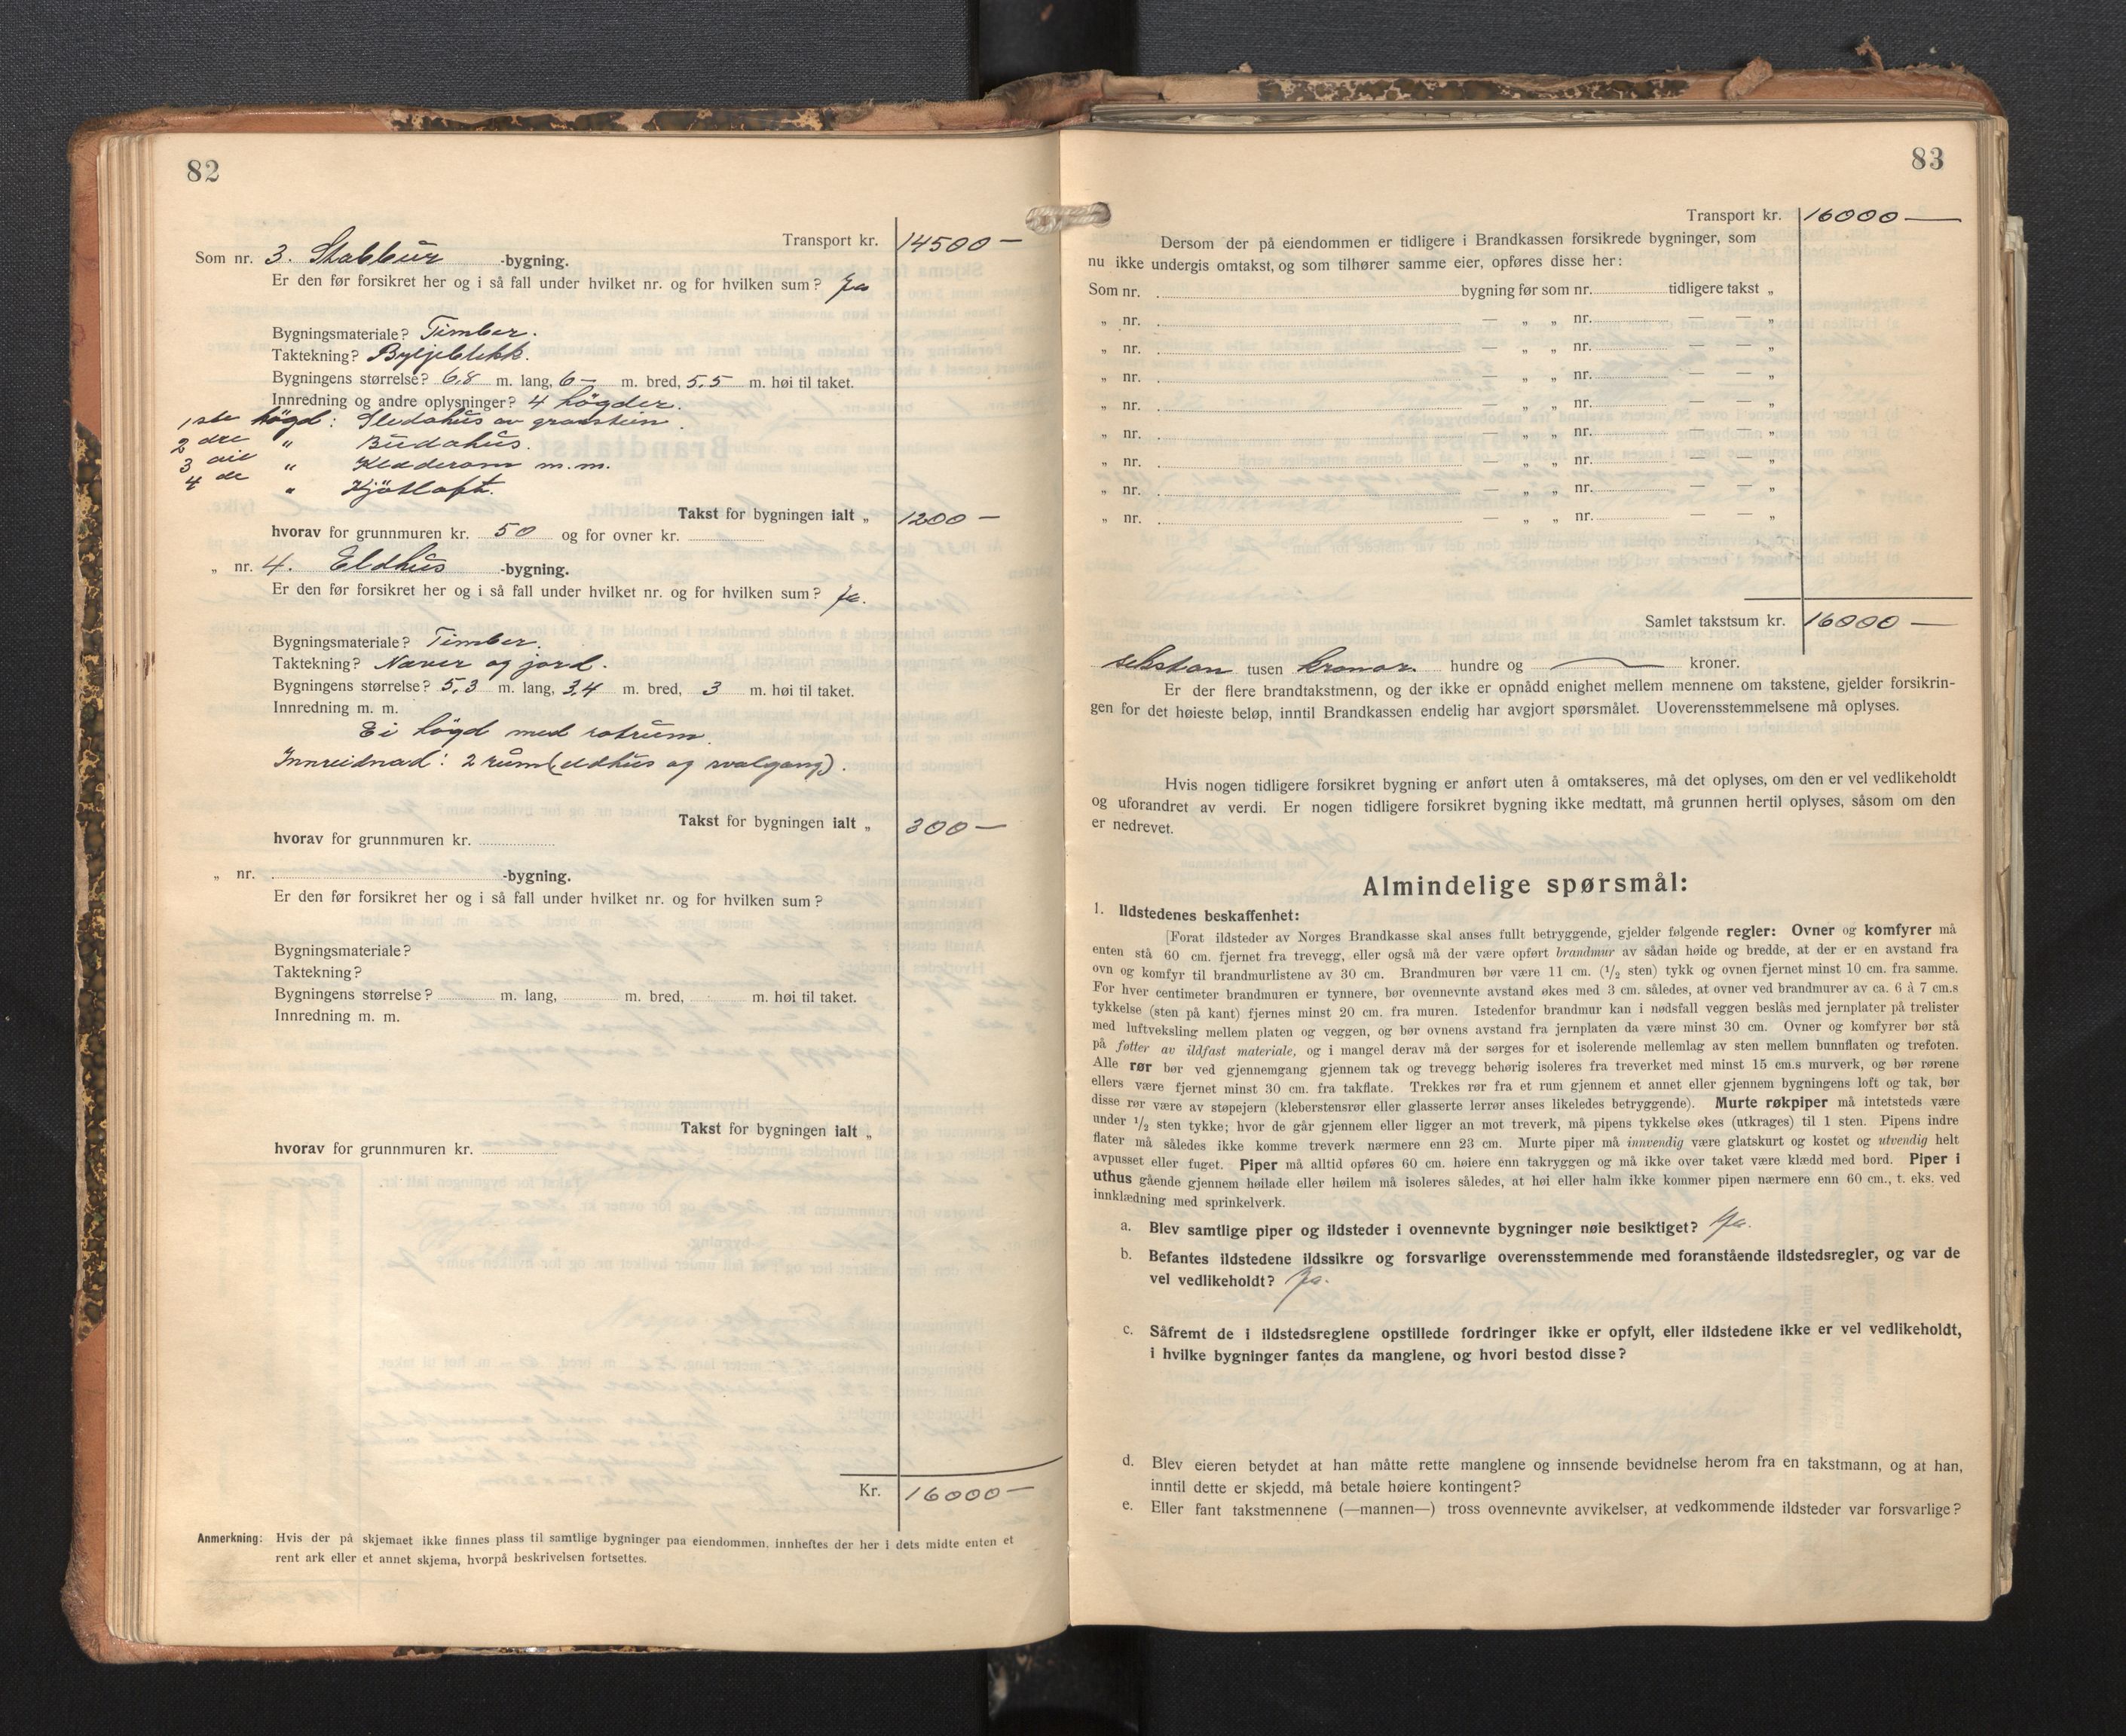 82
Transport kr. 14500 —
Som nr. 3. Stabbur -bygning.
Er den før forsikret her og i så fall under hvilket nr. og for hvilken sum? Ja
Bygningsmateriale? Timber.
Taktekning? Bylgjeblekk.
Bygningens størrelse? 6,8 m. lang, 6 — m. bred, 5,5 m. høi til taket.
Innredning og andre oplysninger? 4 högder.
1ste högd: Sledahus av graastein.
2dre „ Budahus.
3die „ Klæderom m.m.
4de „ Kjötloft.
Takst for bygningen ialt „ 1200 —
hvorav for grunnmuren kr. 50 og for ovner kr.
„ nr. 4. Eldhus -bygning.
Er den før forsikret her og i så fall under hvilket nr. og for hvilken sum? Ja.
Bygningsmateriale? Timber.
Taktekning? Næver og jord.
Bygningens størrelse? 5,3 m. lang, 3,4 m. bred, 3 m. høi til taket.
Innredning m. m.
Ei högd med rotrum.
Innreidnad: 2 rum (eldhus og svalgang).
Takst for bygningen ialt „ 300 —
hvorav for grunnmuren kr.
„ nr. -bygning.
Er den før forsikret her og i så fall under hvilket nr. og for hvilken sum?
Bygningsmateriale?
Taktekning?
Bygningens størrelse? m. lang, m. bred, m. høi til taket.
Innredning m. m.
Takst for bygningen ialt „
hvorav for grunnmuren kr.
Kr. 16000 —
Anmerkning: Hvis der på skjemaet ikke finnes plass til samtlige bygninger paa eiendommen, innheftes der her i dets midte enten et
rent ark eller et annet skjema, hvorpå beskrivelsen fortsettes.
83
Transport kr. 16000 —
Dersom der på eiendommen er tidligere i Brandkassen forsikrede bygninger, som
nu ikke undergis omtakst, og som tilhører samme eier, opføres disse her:
Som nr. bygning før som nr. tidligere takst „
„ nr. — „ „ nr. — — „
„ nr. — „ „ nr. — — „
„ nr. — „ „ nr. — — „
„ nr. — „ „ nr. — — „
„ nr. — „ „ nr. — — „
„ nr. — „ „ nr. — — „
„ nr. — „ „ nr. — — „
„ nr. — „ „ nr. — — „
Samlet takstsum kr. 16000 —
sekstan tusen kronor. hundre og — kroner.
Er der flere brandtakstmenn, og der ikke er opnådd enighet mellem mennene om takstene, gjelder forsikrin-
gen for det høieste beløp, inntil Brandkassen endelig har avgjort spørsmålet. Uoverensstemmelsene må oplyses.
Hvis nogen tidligere forsikret bygning er anført uten å omtakseres, må det oplyses, om den er vel vedlikeholdt
og uforandret av verdi. Er nogen tidligere forsikret bygning ikke medtatt, må grunnen hertil oplyses, såsom om den
er nedrevet.
Almindelige spørsmål:
1. Ildstedenes beskaffenhet:
[Forat ildsteder av Norges Brandkasse skal anses fullt betryggende, gjelder følgende regler: Ovner og komfyrer må
enten stå 60 cm. fjernet fra trevegg, eller også må der være opført brandmur av sådan høide og bredde, at der er en avstand fra
ovn og komfyr til brandmurlistene av 30 cm. Brandmuren bør være 11 cm. (1/2 sten) tykk og ovnen fjernet minst 10 cm. fra samme.
For hver centimeter brandmuren er tynnere, bør ovennevnte avstand økes med 3 cm. således, at ovner ved brandmurer av ca. 6 à 7 cm.s
tykkelse (sten på kant) fjernes minst 20 cm. fra muren. Istedenfor brandmur kan i nødsfall veggen beslås med jernplater på trelister
med luftveksling mellem platen og veggen, og bør ovnens avstand fra jernplaten da være minst 30 cm. Ovner og komfyrer bør stå
på føtter av ildfast materiale, og i mangel derav må der sørges for et isolerende mellemlag av sten mellem bunnflaten og trefoten.
Alle rør bør ved gjennemgang gjennem tak og trevegg behørig isoleres fra treverket med minst 15 cm.s murverk, og bør rørene
ellers være fjernet minst 30 cm. fra takflate. Trekkes rør fra et rum gjennem et annet eller gjennem bygningens loft og tak, bør
disse rør være av støpejern (kleberstensrør eller glasserte lerrør anses likeledes betryggende). Murte røkpiper må intetsteds være
under 1/2 sten tykke; hvor de går gjennem eller ligger an mot treverk, må pipens tykkelse økes (utkrages) til 1 sten. Pipens indre
flater må således ikke komme treverk nærmere enn 23 cm. Murte piper må innvendig være glatskurt og kostet og utvendig helt
avpusset eller fuget. Piper må alltid opføres 60 cm. høiere enn takryggen og må ikke over taket være klædd med bord. Piper i
uthus gående gjennem høilade eller høilem må isoleres således, at høi eller halm ikke kommer pipen nærmere enn 60 cm., t. eks. ved
innklædning med sprinkelverk.
a. Blev samtlige piper og ildsteder i ovennevnte bygninger nøie besiktiget? Ja.
b. Befantes ildstedene ildssikre og forsvarlige overensstemmende med foranstående ildstedsregler, og var de
vel vedlikeholdt? Ja.
c. Såfremt de i ildstedsreglene opstillede fordringer ikke er opfylt, eller ildstedene ikke er vel vedlikeholdt,
i hvilke bygninger fantes da manglene, og hvori bestod disse?
d. Blev eieren betydet at han måtte rette manglene og innsende bevidnelse herom fra en takstmann, og at han,
inntil dette er skjedd, må betale høiere kontingent?
e. Eller fant takstmennene (—mannen—) tross ovennevnte avvikelser, at vedkommende ildsteder var forsvarlige?